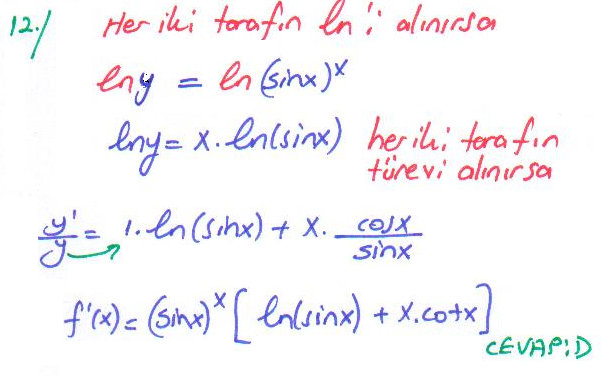 12./ Her iki tarafın ln'i alınırsa
lny = ln(sinx)^x
lny = x.ln(sinx) her iki tarafın
türevi alınırsa
y'/y = 1.ln(sinx) + x. cosx/sinx
f'(x) = (sinx)^x [ ln(sinx) + x.cotx]
CEVAP:D